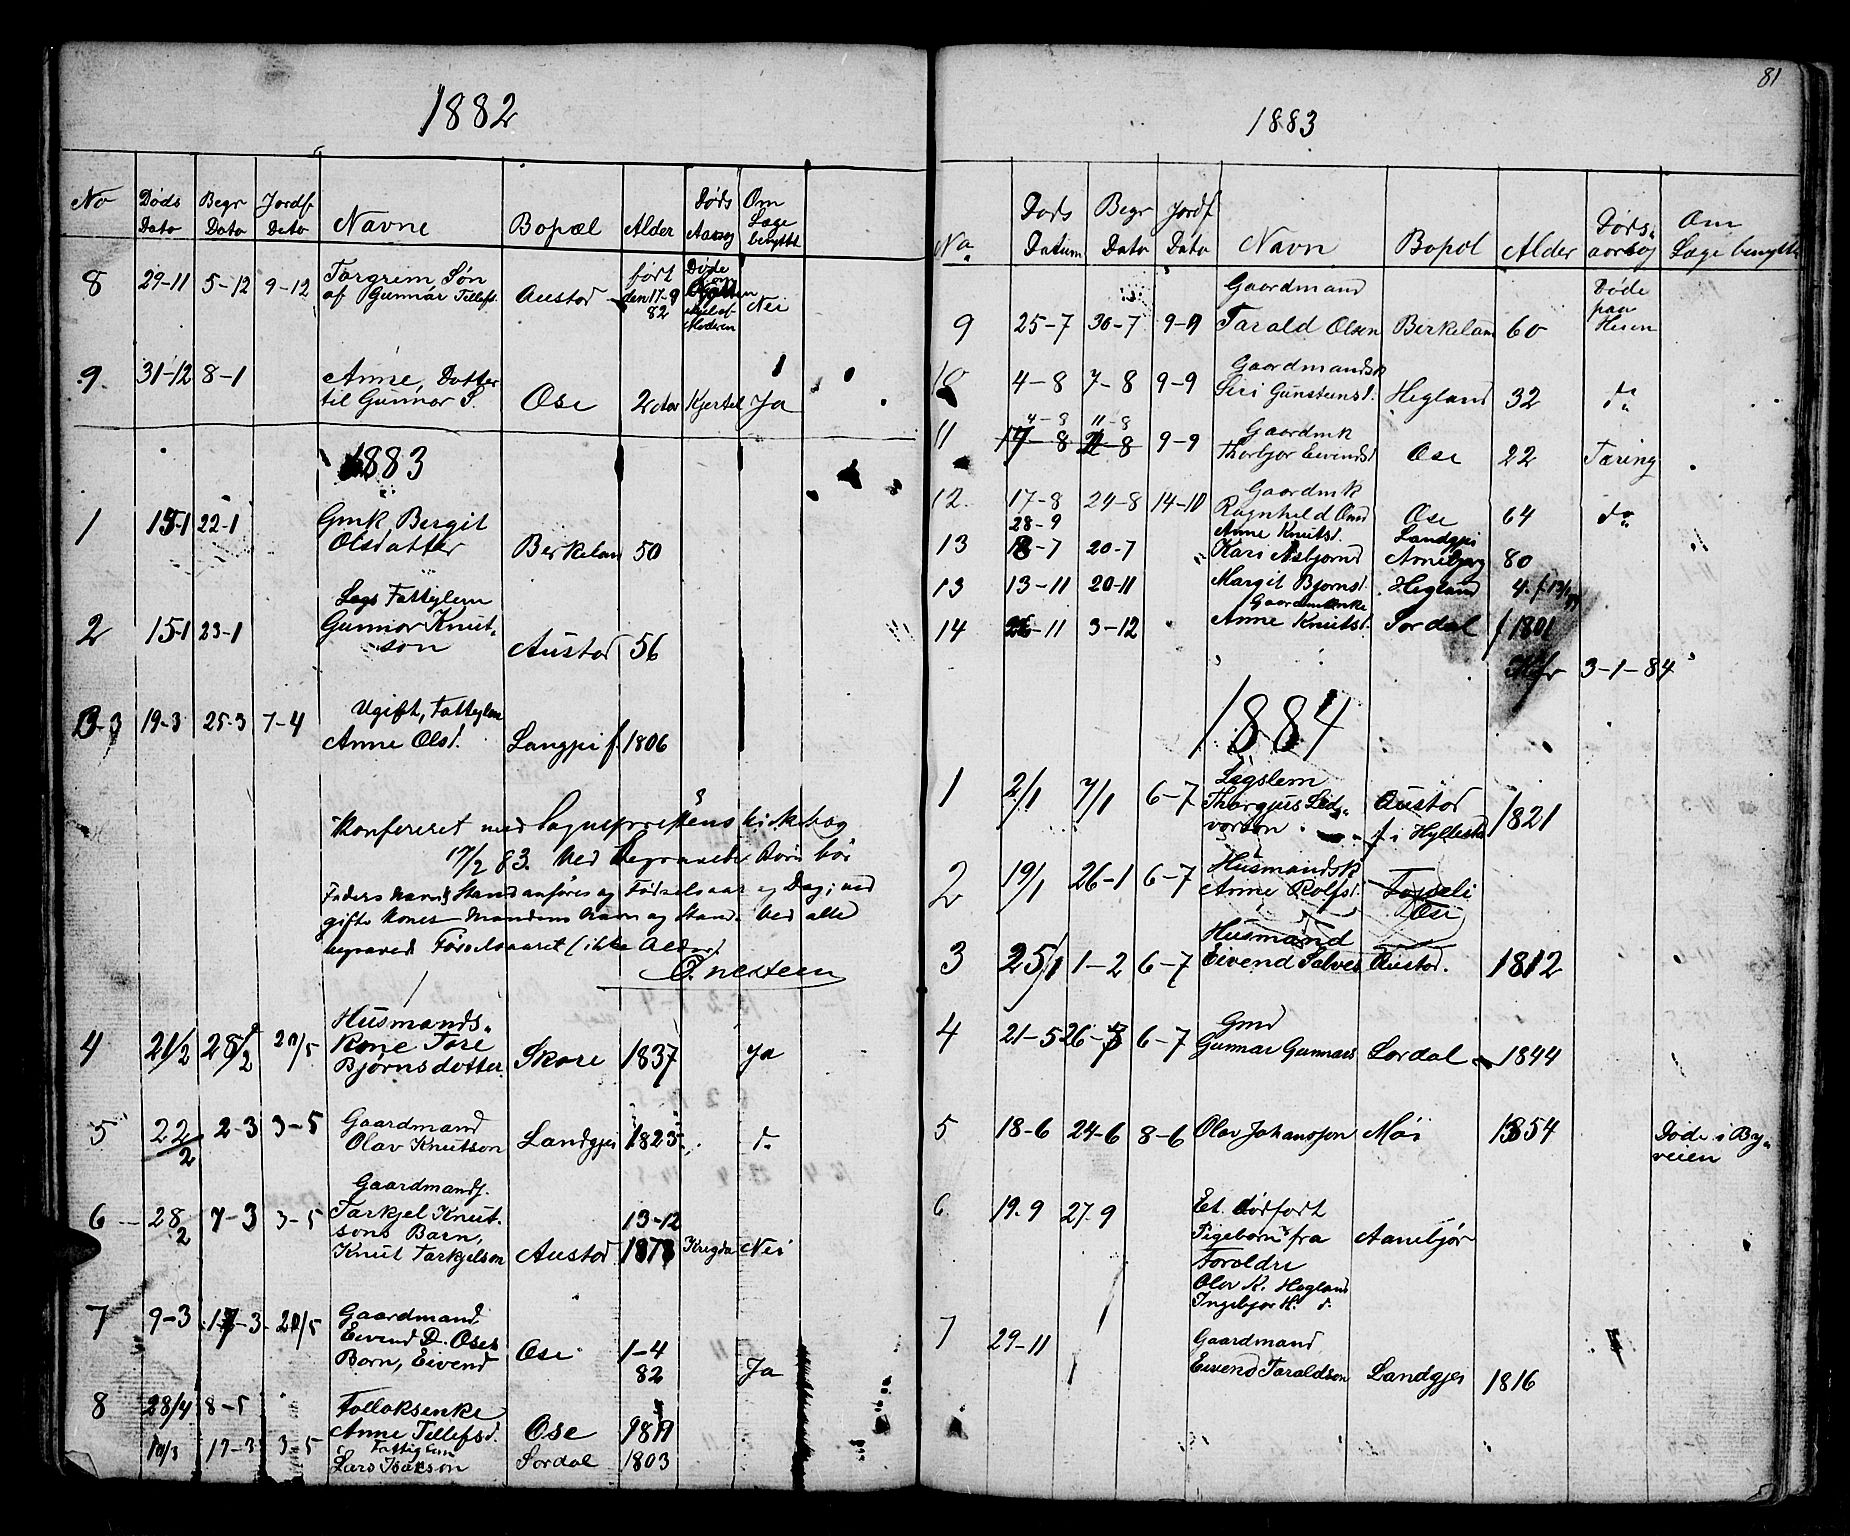 1882
No Døds Dato Begr Dato Jordf Dato Navne Bopæl Alder Døds Aarsag Om Læge benyttet
8 29-11 5-12 9-12 Targrim Søn af Gunnar Tellefs. Austad født den 17-9 82 Døde Moderen Nei
9. 31-12 8-1 Anne, Datter til Gunnar S. Ose Kjertel Ja
1883
1 15-1 22-1 Gmk Bergit Olsdatter Berkelan 50
2 15-1 23-1 Lægs Fattiglem Gunnar Knutson Austad 56
3 19-3 25-3 7-4 Ugift, Fattiglem Anne Olsd. Langjei f. 1806
Konfereret med Sognepræstens kirkebog
17/2 83. Ved begravede Børn bør
Faders Navn & Stand anføres og Fødselsaar og Dag; ved
gifte Koner Mandens Navn og Stand. Ved alle
begraved Fødselsaaret (ikke Alder)
4 21/2 28/2 20/5 Husmands- Kone Tore Bjørnsdotter Skare 1837 Ja
5 22/2 2-3 3-5 Gaardmand Olav Knutson Landgjei 1823 d.
6 28/2 7-3 3-5 Gaardmands. Tarkjel Knut- sons Barn, Knut Tarkjelson Austad 13-12 1878 Nei
7 9-3 17-3 20/5 Gaardmand Eivend D. Oses Born, Eivend Ose 1-4 82 Ja
8 28/4 8-5 Anne Tellefsd. Ose
10/3 17-3 3-5 Fattiglem Lars Isakson Sordal 1803
81
1883
No. Døds Datum Begr Dato Jordf Dato Navn Bopæl Alder Døds- aarsag Om Læge benyttet
9 25-7 30-7 9-9 Gaardmand Tarald Olsen Berkelan 60 Døde paa Heien
10 4-8 7-8 9-9 Gaardmandsk Siri Gunstensd. Hegland 32 do
4-8 11-8
11 9-9 Gaardmk Thorbjør Eivendsd Ose 22 Tæring
12. 17-8 24-8 14-10 Gaardmk Ragnheld Ose 64 do
28-9 Anne Knutsd. Landgjei
13 18-7 20-7 Kari Asbjørnd Amebjørg 80
13 13-11 20-11 Margit Bjørnsd. Hegland 4.
14 26-11 3-12 Gaardmenke Anne Knutsd. Sordal f 1801
3-1-84
1884
1 2/1 7/1 6-7 Lægslem Thorgjus Sid- vorson Austad f. i Hyllestad 1821
2 19/1 26-1 6-7 Husmandsk Anne Rolfsd. Ose
3 25/1 1-2 6-7 Husmand Eivend Salves Austad. 1812
4 21-5 26-5 6-7 Gmd Gunnar Gunnars Sordal 1844
5 18-6 24-6 8-6 Olav Johansson Moi 1854 Døde i By- veien
6 19.9 27.9 Et dødfødt Pigebarn fra Foroldre Olav K. Hegland Ingebjor H. d. Aanebjør
7 29-11 Gaardmand Eivend Taraldson Landgjei 1816